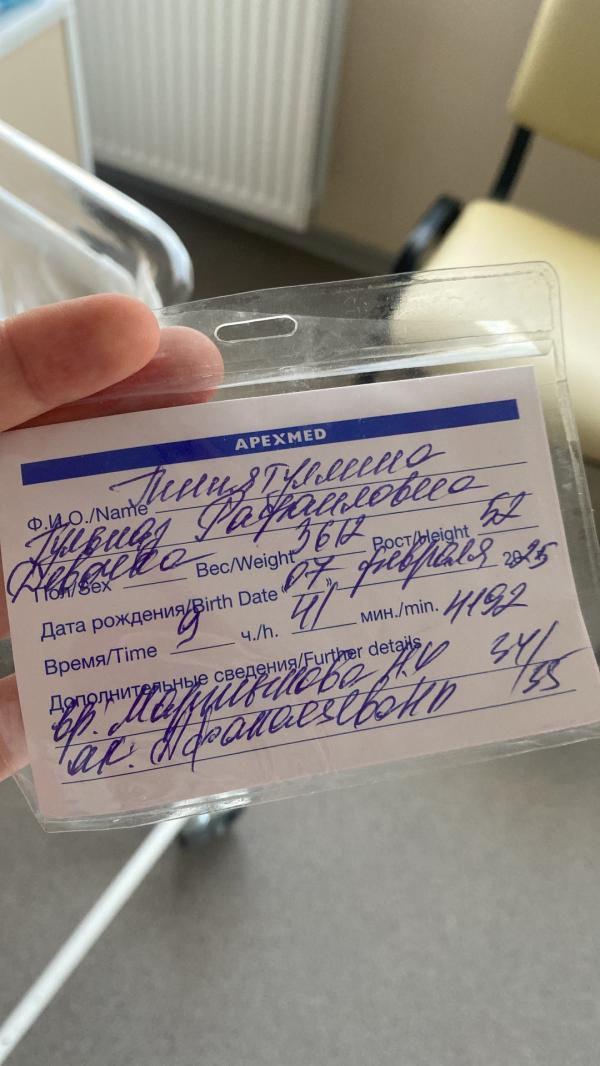 APEXMED
Ф.И.О./Name Гиниятуллина
Гульназ Рафаиловна
Пол/Sex Девочка Вес/Weight 3612 Рост/Height 52
Дата рождения/Birth Date "07" февраля 2025
Время/Time 9 ч./h. 41 мин./min. 4192
Дополнительные сведения/Further details 34/
вр. 35
ак.